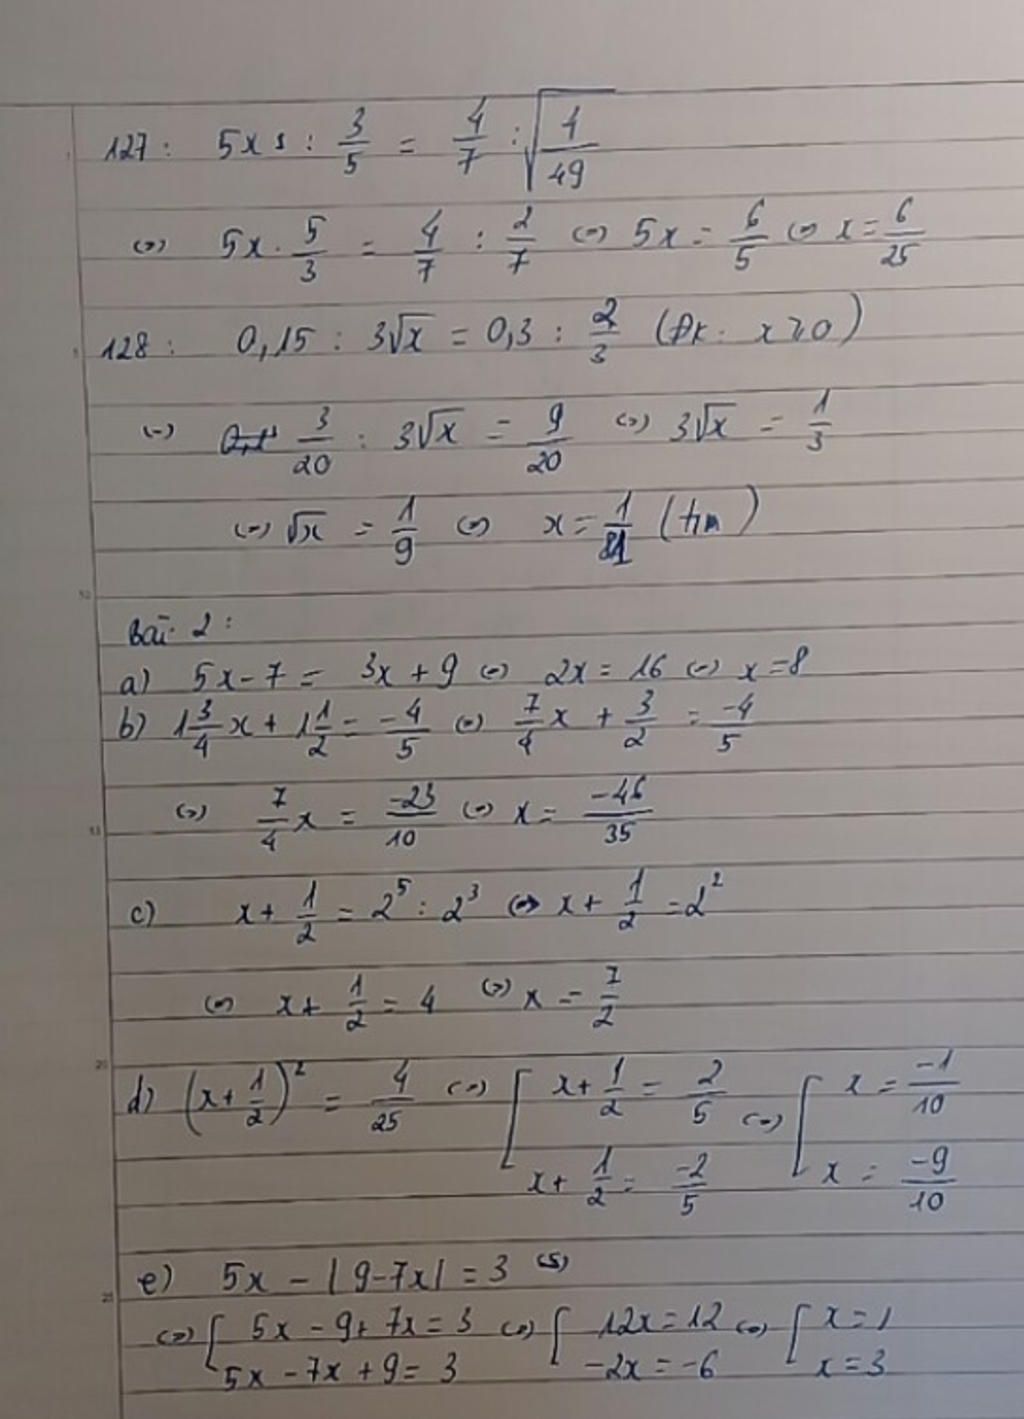 127 : 5x : 3/5 = 4/7 : √(4/49)
(=) 5x . 5/3 = 4/7 : 2/7 (=) 5x = 6/5 (=) x = 6/25
128 : 0,15 : 3√x = 0,3 : 2/3 (Đk : x ≥ 0)
(=) 3/20 : 3√x = 9/20 (=) 3√x = 1/3
(=) √x = 1/9 (=) x = 1/81 (tm)
Bài 2 :
a) 5x - 7 = 3x + 9 (=) 2x = 16 (=) x = 8
b) 1 3/4 x + 1 1/2 = -4/5 (=) 7/4 x + 3/2 = -4/5
(=) 7/4 x = -23/10 (=) x = -46/35
c) x + 1/2 = 2⁵ : 2³ (=) x + 1/2 = 2²
(=) x + 1/2 = 4 (=) x = 7/2
d) (x + 1/2)² = 4/25 (=) [ x + 1/2 = 2/5 (=) [ x = -1/10
x + 1/2 = -2/5 x = -9/10
e) 5x - |9 - 7x| = 3
(=) [ 5x - 9 + 7x = 3 (=) [ 12x = 12 (=) [ x = 1
5x - 7x + 9 = 3 -2x = -6 x = 3